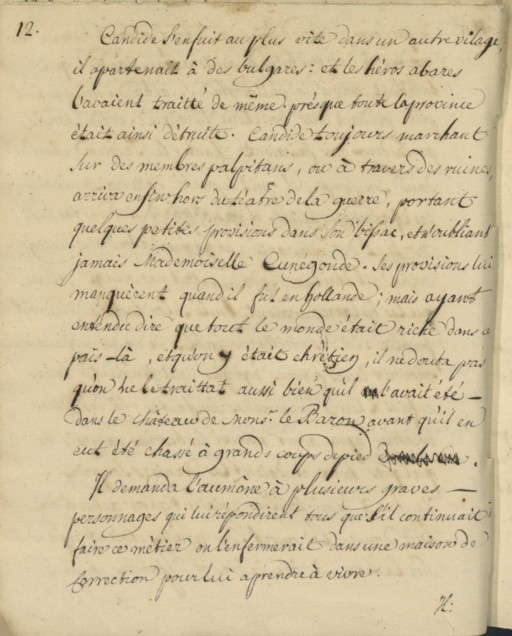 12.
Candide s'enfuit au plus vite dans un autre vilage,
il apartenait à des bulgares: et les héros abares
l'avaient traitté de même. présque toute la province
était ainsi détruite. Candide toujours marchant
sur des membres palpitans, ou à travers des ruines,
arriva enfin hors du téatre de la guerre, portant
quelques petites provisions dans son bissac, et n'oubliant
jamais Mademoiselle Cunégonde. Ses provisions lui
manquèrent quand il fut en hollande; mais ayant
entendu dire que tout le monde était riche dans ce
païs-là, et qu'on y était chrétien, il ne douta pas
qu'on ne le traittat aussi bien qu'il l'avait été
dans le château de Monsr. le Baron avant qu'il en
eut été chassé à grands coups de pied.
Il demanda l'aumône à plusieurs graves
personnages qui lui répondirent tous que s'il continuait à
faire ce métier on l'enfermerait dans une maison de
correction pour lui aprendre à vivre.